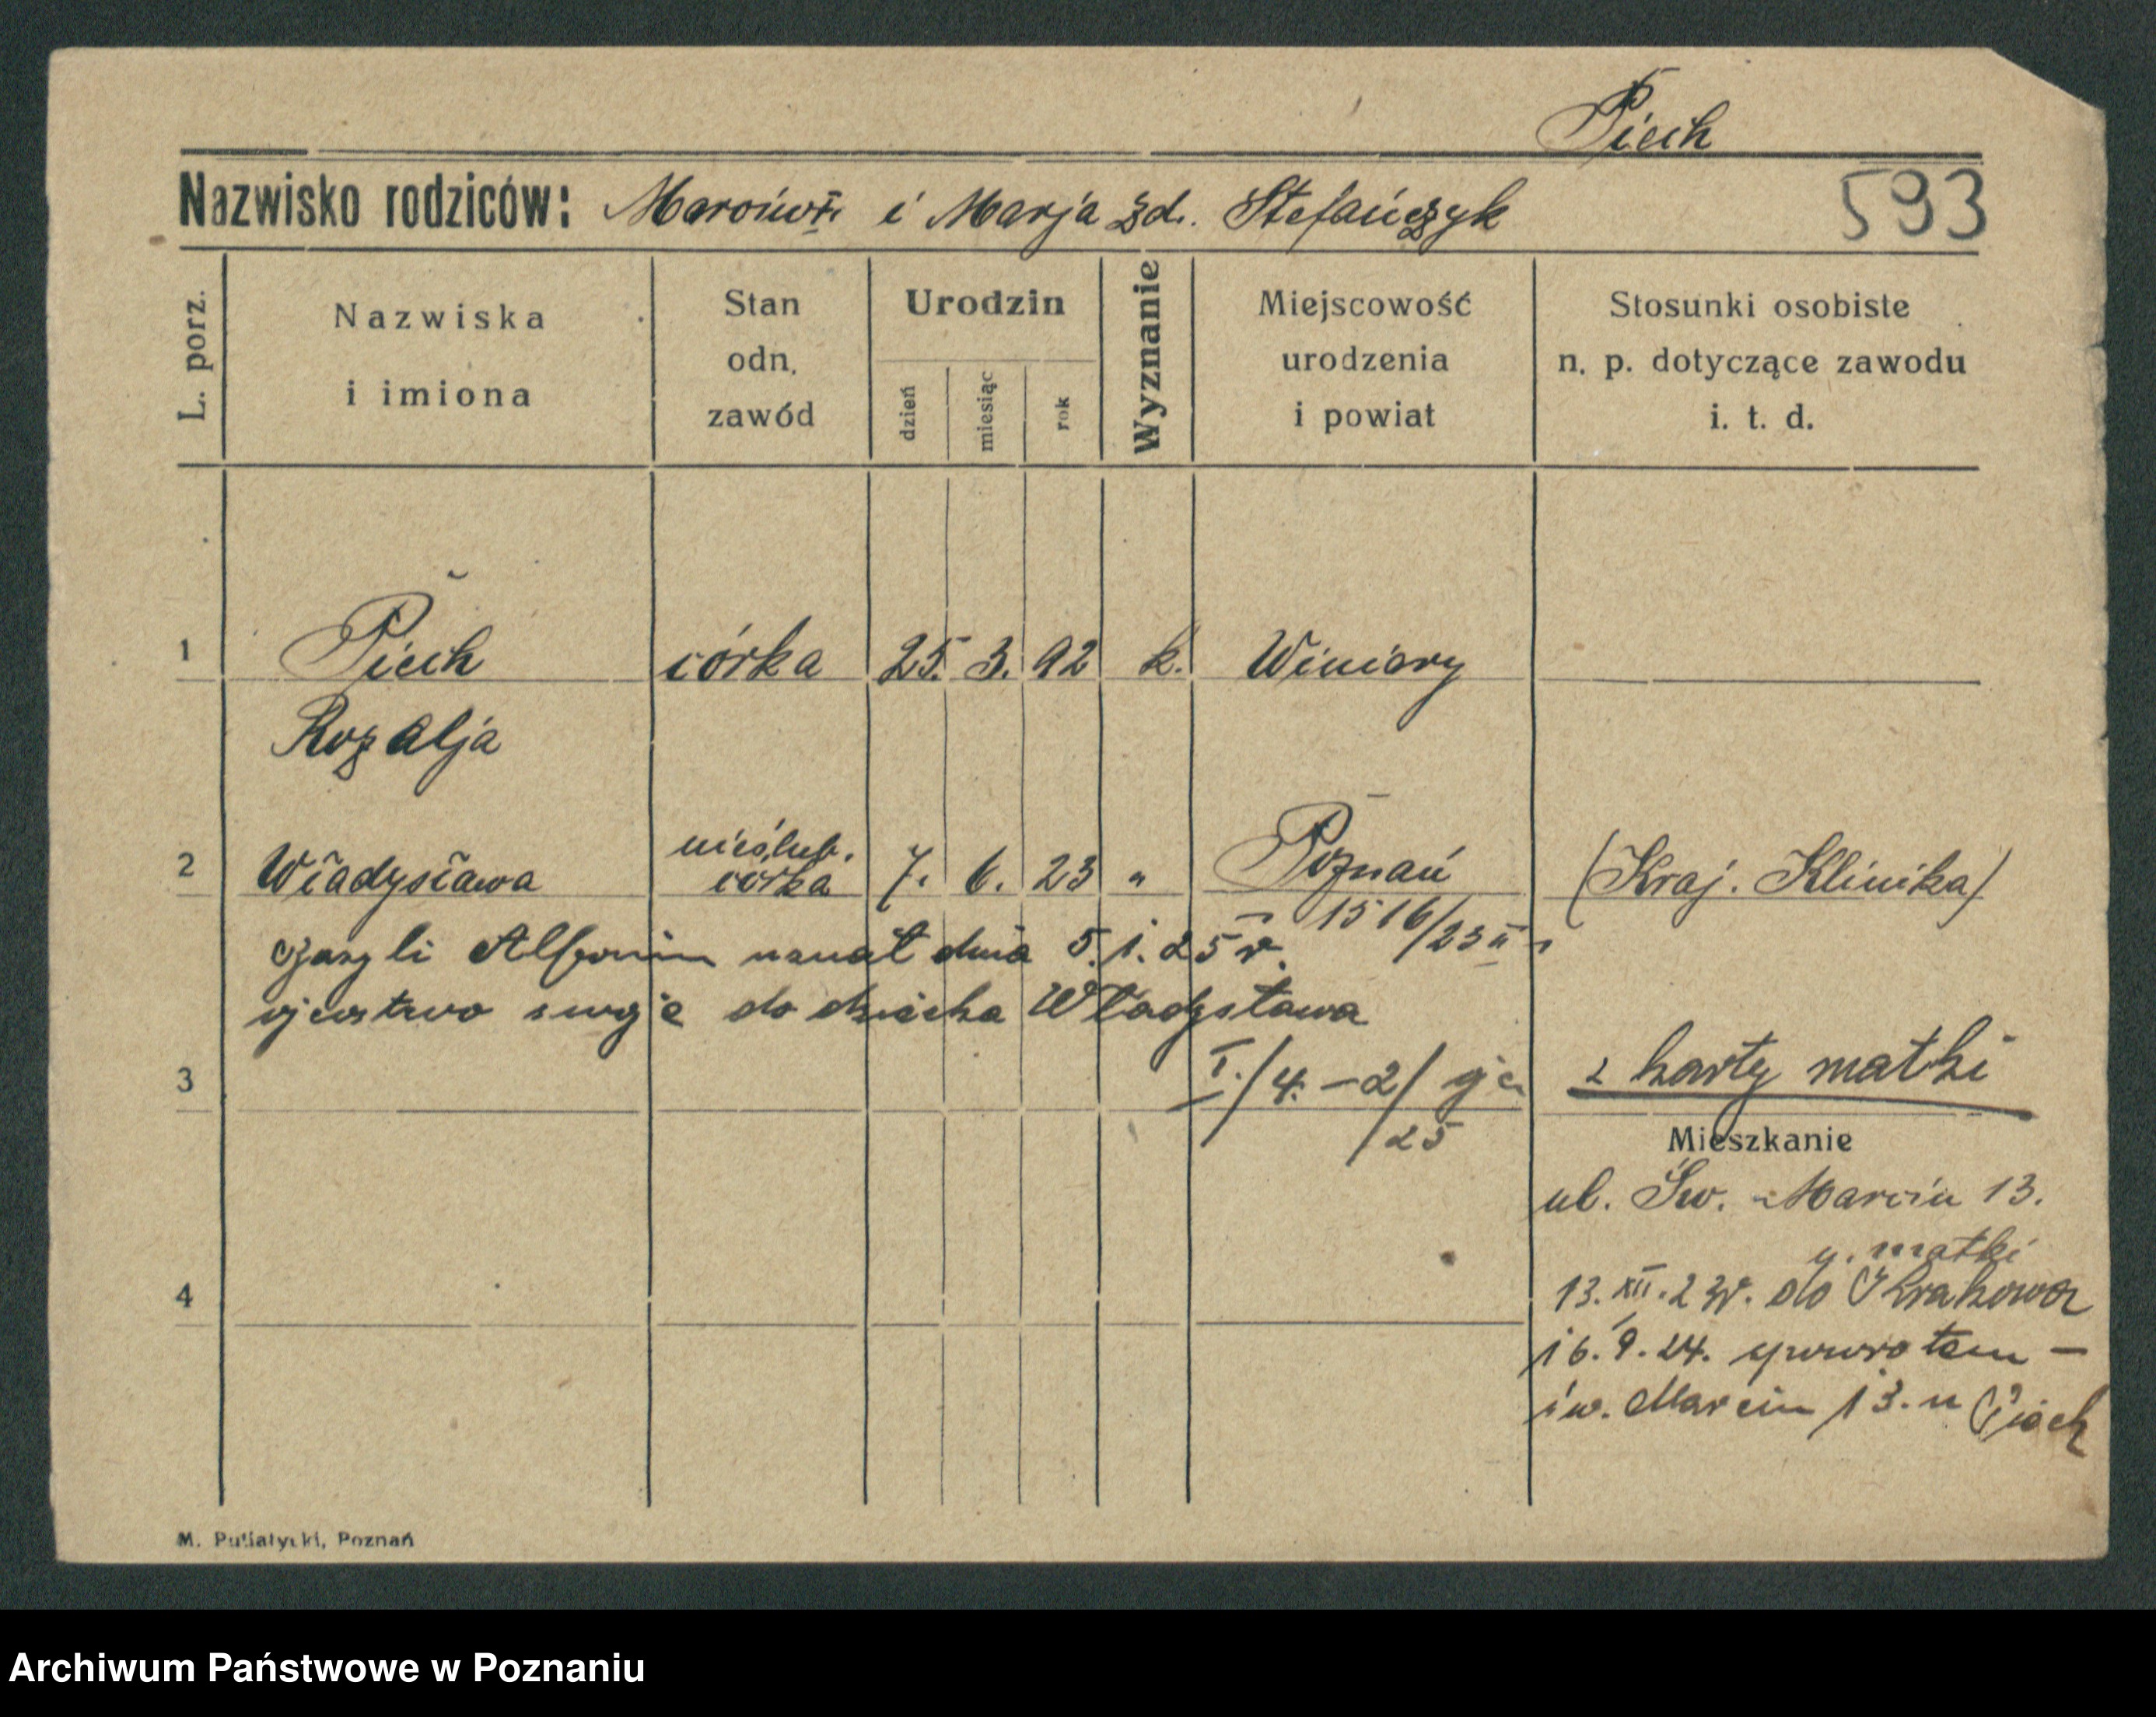 Piech
Nazwisko rodziców: Marcin i Marja zd. Stefańczyk 593
L. porz.
Nazwiska i imiona
Stan odn. zawód
Urodzin
dzień miesiąc rok
Wyznanie
Miejscowość urodzenia i powiat
Stosunki osobiste n. p. dotyczące zawodu i. t. d.
1 Piech córka 25. 3. 92 k. Winiary
Rozalja
nieślub.
2 Władysława córka 7. 6. 23 " Poznań (Kraj. Klinika)
1516/23 II
uznał dnia 5. 1. 25 r.
ojcostwo swoje do dziecka Władysława
3 I./4. - 2/25 z karty matki
Mieszkanie
ul. Św. Marcin 13.
u. matki
13. XII. 23 r. do Krakowa
4
16. 9. 24. spowrotem -
św. Marcin 13. u Piech
M. Putiatycki, Poznań
Archiwum Państwowe w Poznaniu